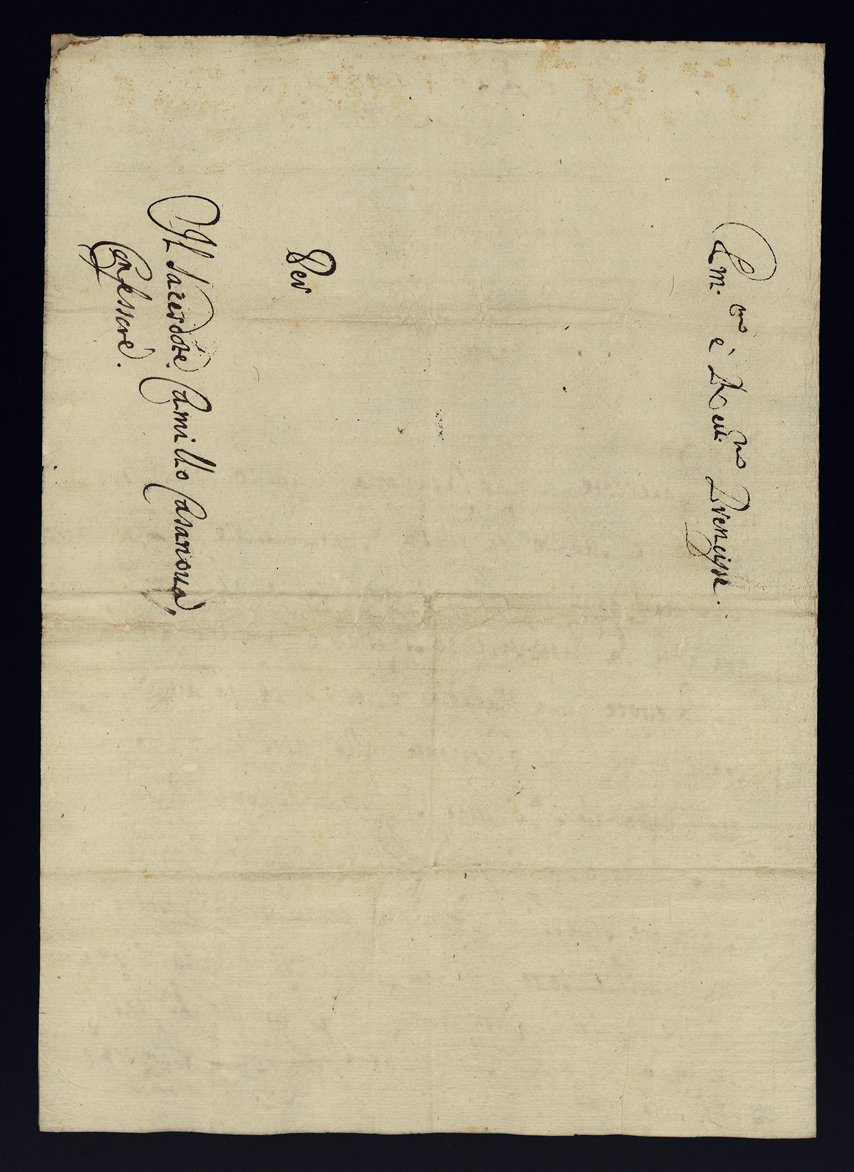 Em.mo è Reu.mo Prencipe.
Per
Il Sacerdote Camillo Casanoua,
Confessore.